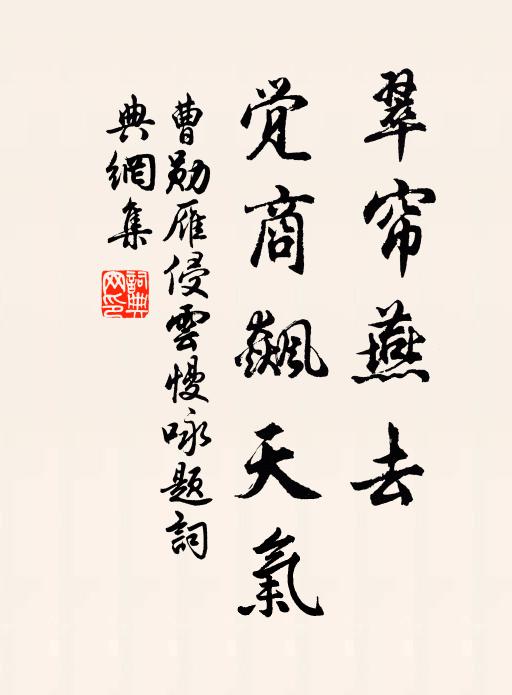 翠帘燕去
觉商飙天氣
曹勋雁侵雲慢咏题詞
典網集
詞典
网印